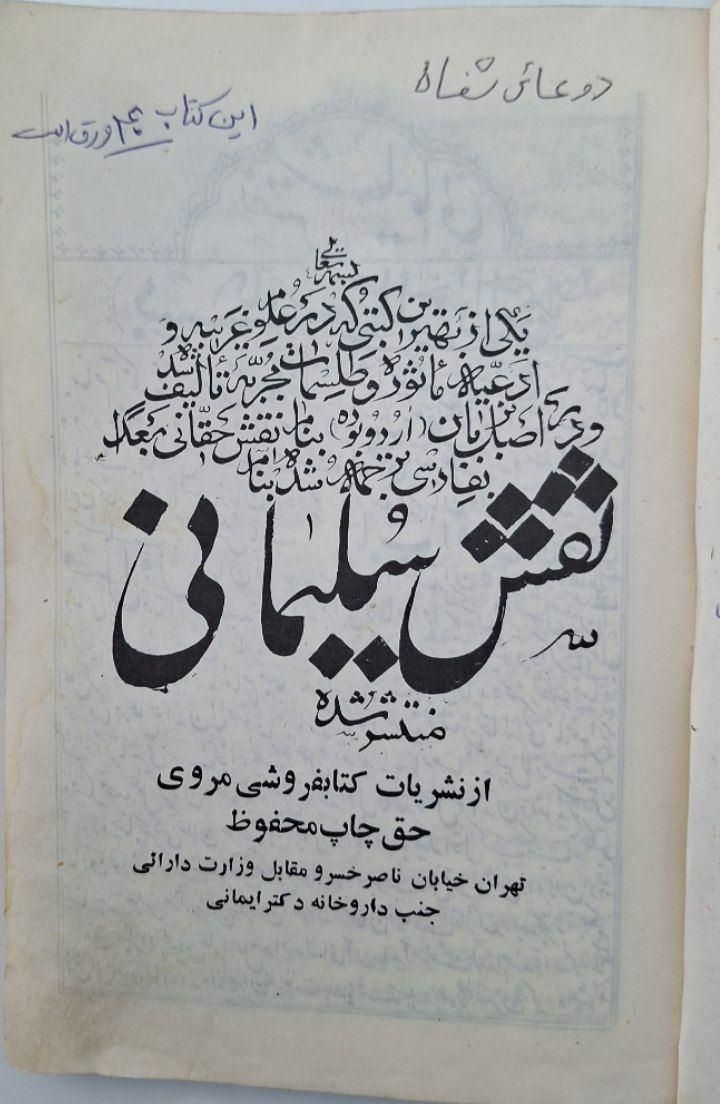 دوعائ شفاه
این کتاب ورق است
بسمه تعالی
یکی از بهترین کتبی که در علوم غریبه و
ادعیّه مأثوره و طلسمات مجربه تألیف شده
و در اصل بزبان (اردو بوده) بنام نقش حقانی بعداً
بفارسی ترجمه شده بنام
نقش سلیمانی
منتشر شده
از نشریات کتابفروشی مروی
حق چاپ محفوظ
تهران خیابان ناصر خسرو مقابل وزارت دارائی
جنب داروخانه دکتر ایمانی